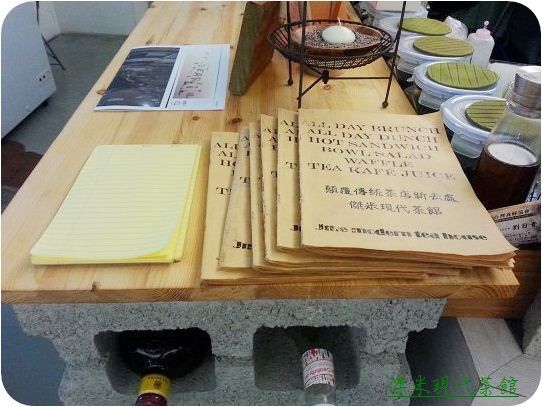 ALL DAY BRUNCH
ALL DAY DUNCH
HOT SANDWICH
BOWL SALAD
WAFFLE
TEA KAFE JUICE
顛覆傳統茶店新去處
傑米現代茶館
Jme modern tea house
傑米現代茶館